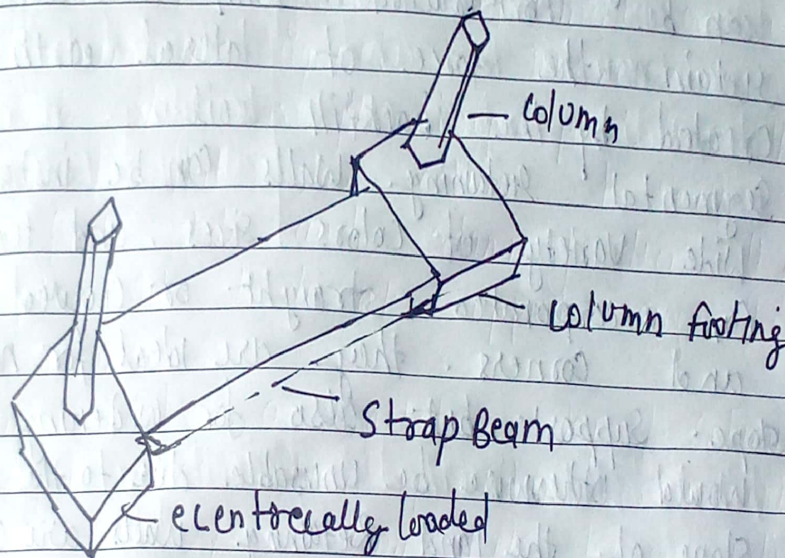 column
column footing
Strap Beam
ecentrecally loaded